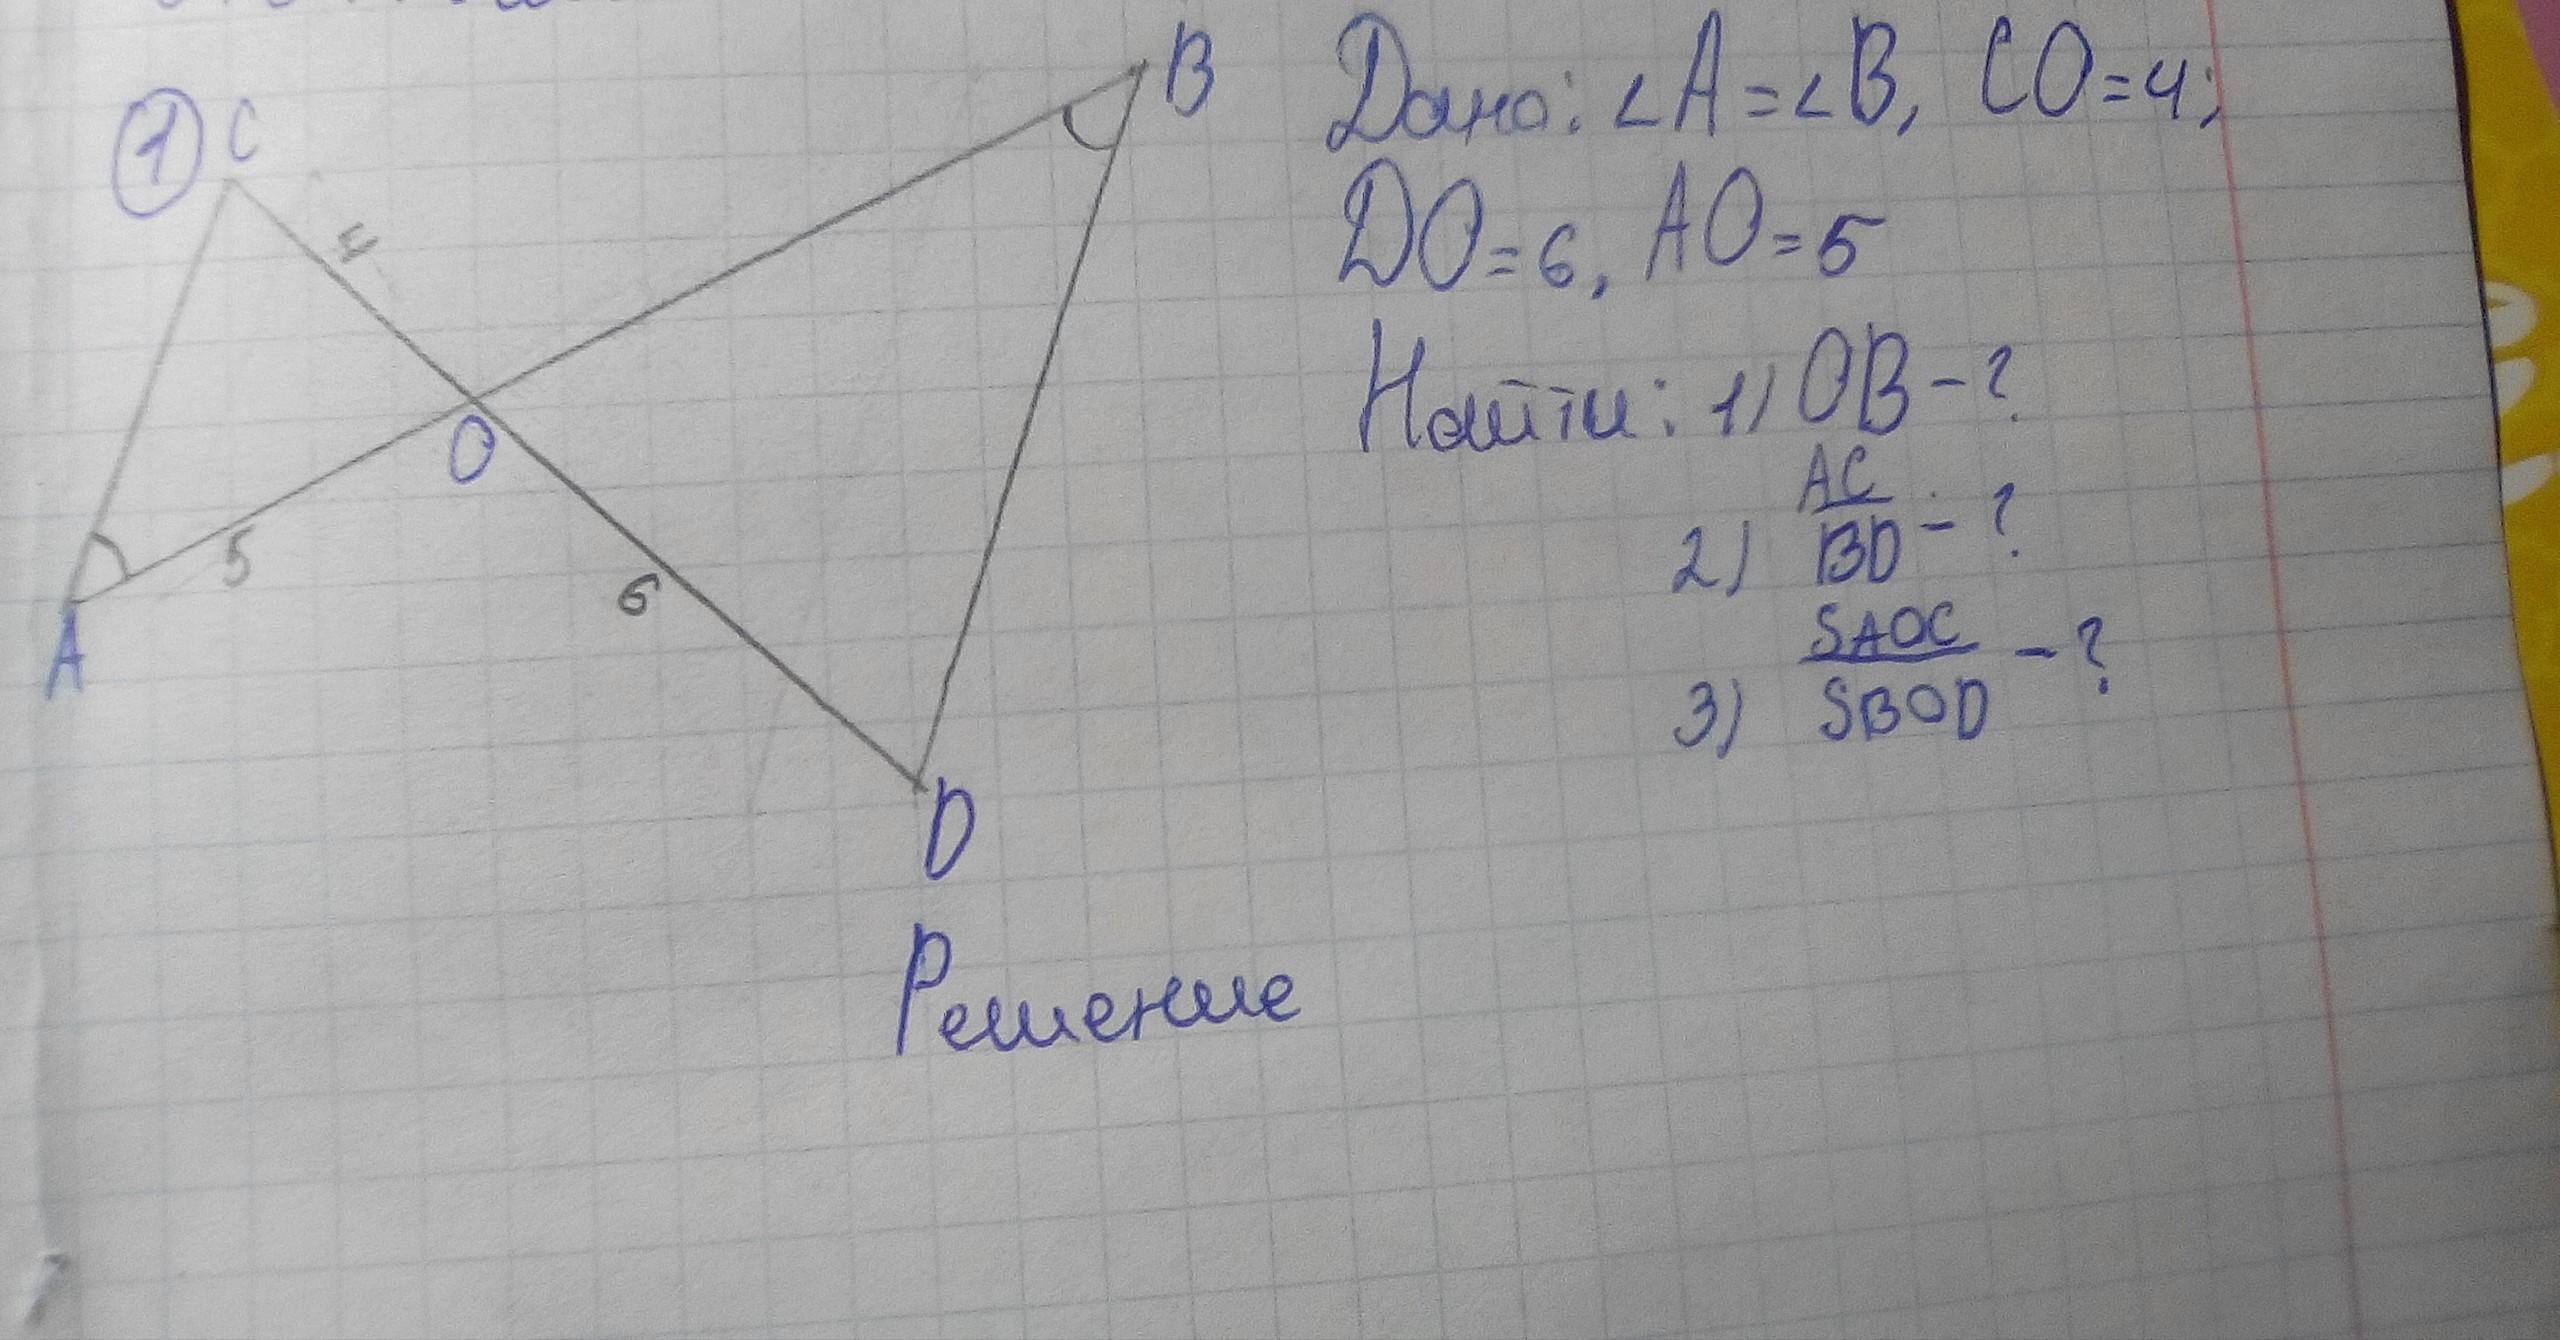 ① C
B
4
O
5
6
A
D
Дано: ∠A=∠B, CO=4;
DO=6, AO=5
Найти: 1) OB-?
2) AC/BD-?
3) SAOC/SBOD-?
Решение